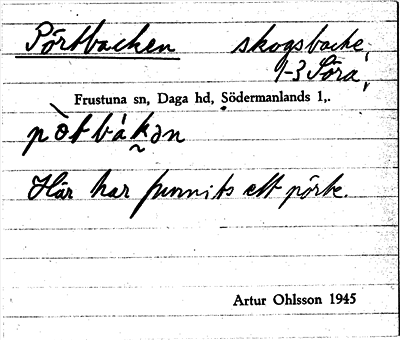 Pörtbacken skogsbacke,
1-3 Söra,
Frustuna sn, Daga hd, Södermanlands l,.
pòtbákən
Här har funnits ett pörte.
Artur Ohlsson 1945